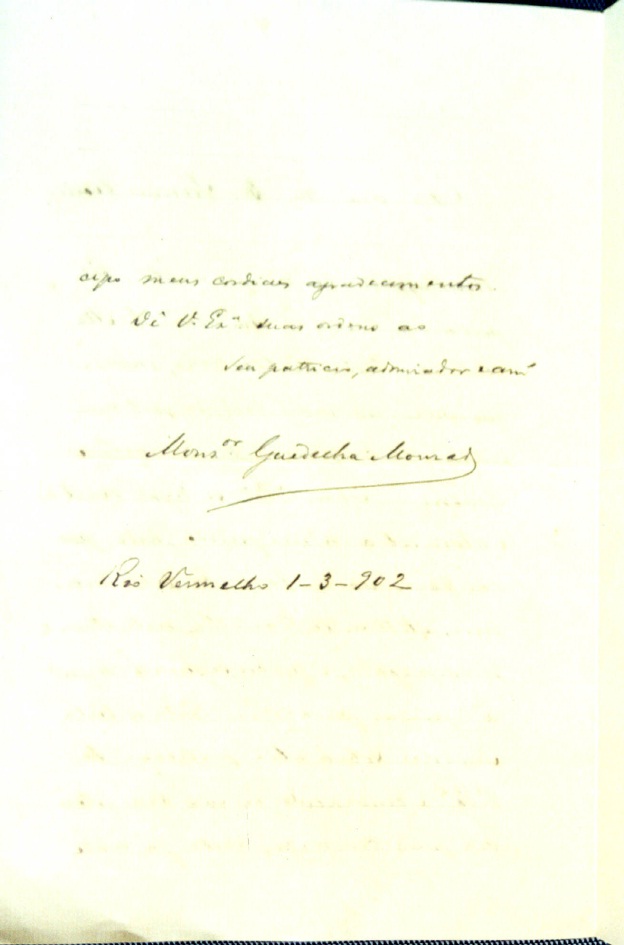 cipo meus cordiaes agradecimentos.
Dê V. Exª suas ordens ao
Seu patricio, admirador e amº
Monsºr Guedelha Mourão
Rio Vermelho 1-3-902